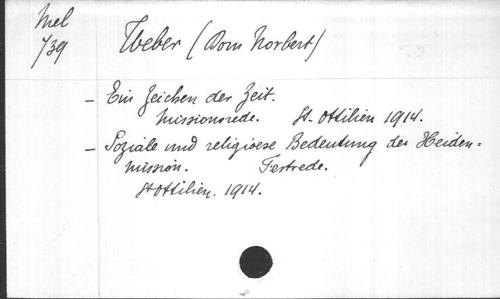 Mel
739
Weber (Dom Norbert)
- Ein Zeichen der Zeit.
Missionsrede. St. Ottilien 1914.
- Soziale und religiöse Bedeutung der Heiden=
mission. Festrede.
St Ottilien. 1914.